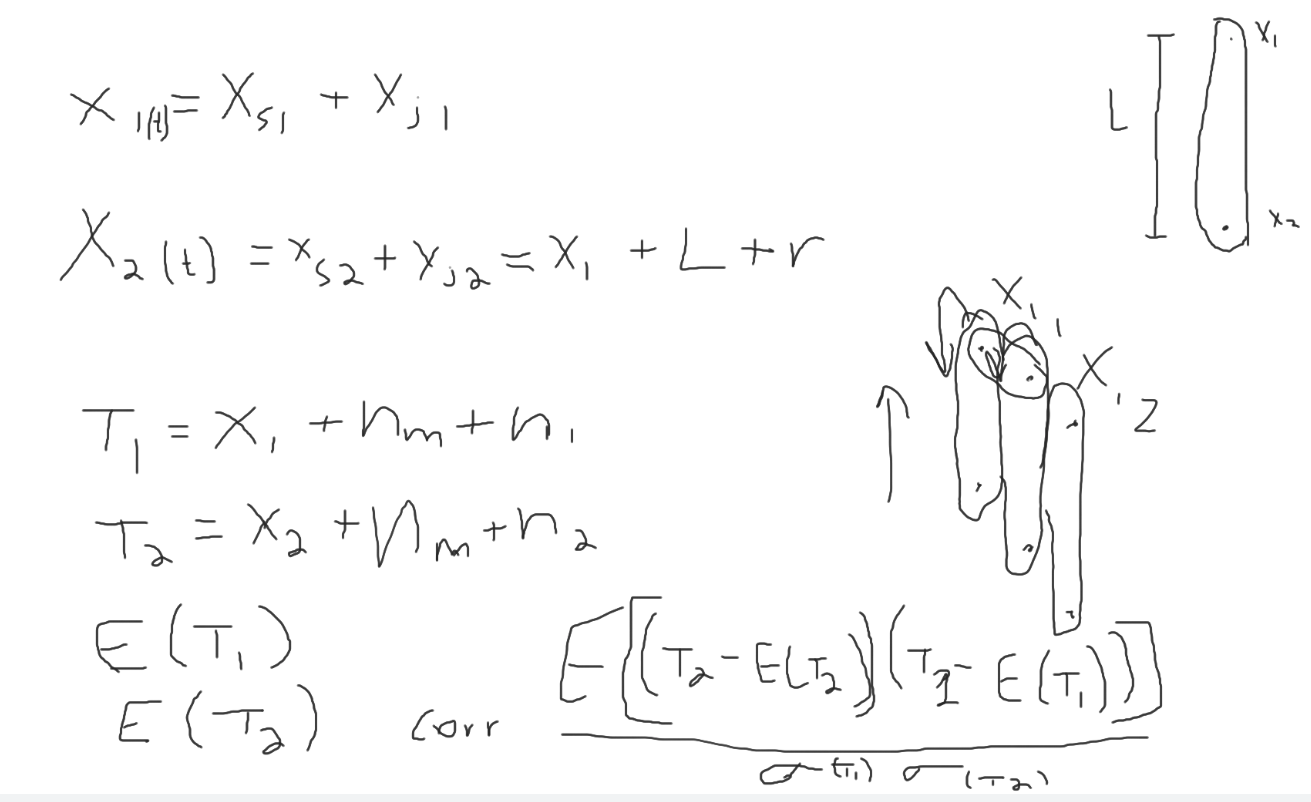 x₁(t) = X_s1 + X_j1
X₂(t) = x_s2 + y_j2 = x₁ + L + r
T₁ = x₁ + n_m + n₁
T₂ = x₂ + n_m + n₂
E(T₁)
E(T₂)
corr
E[(T₂ - E(T₂))(T₁ - E(T₁))]
σ(T₁) σ(T₂)
L
x₁
x₂
X₁,1
X₁,2